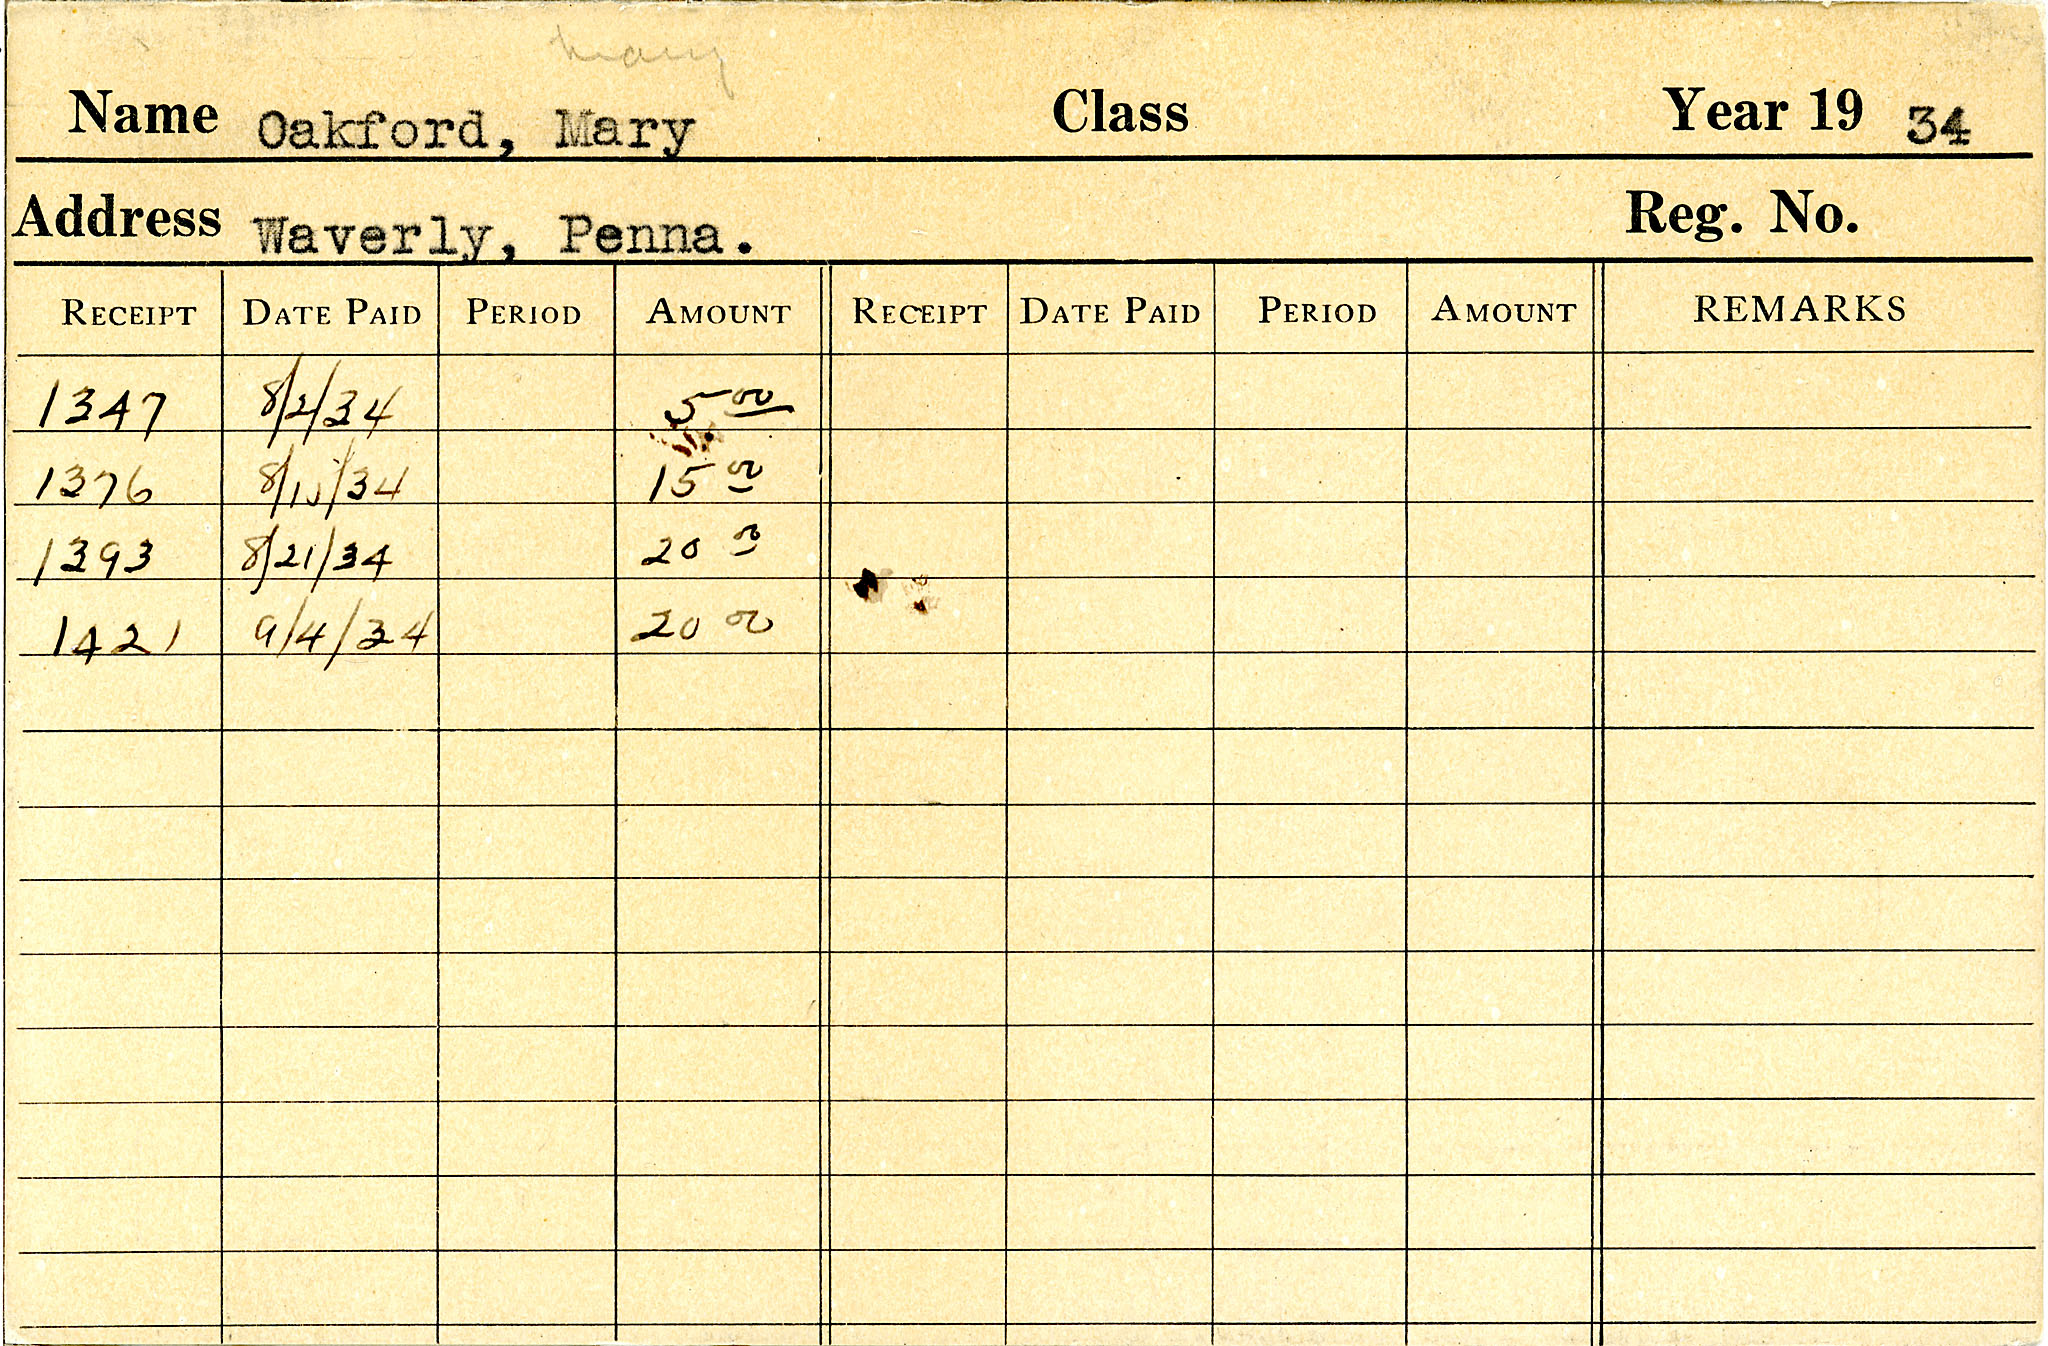 Mary
Name Oakford, Mary Class Year 19 34
Address Waverly, Penna. Reg. No.
RECEIPT DATE PAID PERIOD AMOUNT RECEIPT DATE PAID PERIOD AMOUNT REMARKS
1347 8/2/34 5 00
1376 34 15 00
1393 8/21/34 20 00
1421 9/4/34 20 00